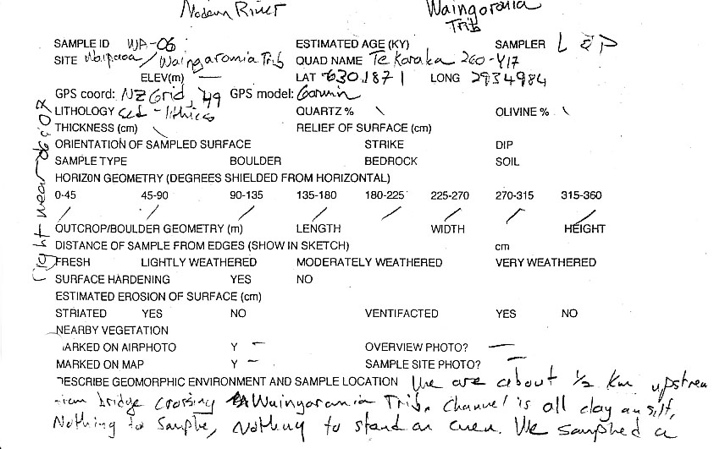 Modern River Waingaromia Trib
SAMPLE ID WA-06 ESTIMATED AGE (KY) SAMPLER L & P
SITE Waipaoa/Waingaromia Trib QUAD NAME Te Karaka 260-Y17
ELEV(m) — LAT 6301871 LONG 2934984
GPS coord: NZ Grid, '49 GPS model: Garmin
LITHOLOGY sed - lithics QUARTZ % \ OLIVINE % \
THICKNESS (cm) \ RELIEF OF SURFACE (cm)
ORIENTATION OF SAMPLED SURFACE STRIKE DIP
SAMPLE TYPE BOULDER BEDROCK SOIL
HORIZON GEOMETRY (DEGREES SHIELDED FROM HORIZONTAL)
0-45 45-90 90-135 135-180 180-225 225-270 270-315 315-360
/ / / / / / / /
OUTCROP/BOULDER GEOMETRY (m) LENGTH WIDTH HEIGHT
DISTANCE OF SAMPLE FROM EDGES (SHOW IN SKETCH) cm
FRESH LIGHTLY WEATHERED MODERATELY WEATHERED VERY WEATHERED
SURFACE HARDENING YES NO
ESTIMATED EROSION OF SURFACE (cm)
STRIATED YES NO VENTIFACTED YES NO
NEARBY VEGETATION
MARKED ON AIRPHOTO Y — OVERVIEW PHOTO? —
MARKED ON MAP Y — SAMPLE SITE PHOTO? —
DESCRIBE GEOMORPHIC ENVIRONMENT AND SAMPLE LOCATION We are about 1/2 km upstream
from bridge crossing Waingaromia Trib. Channel is all clay and silt,
Nothing to sample, nothing to stand on even. We sampled a
right near